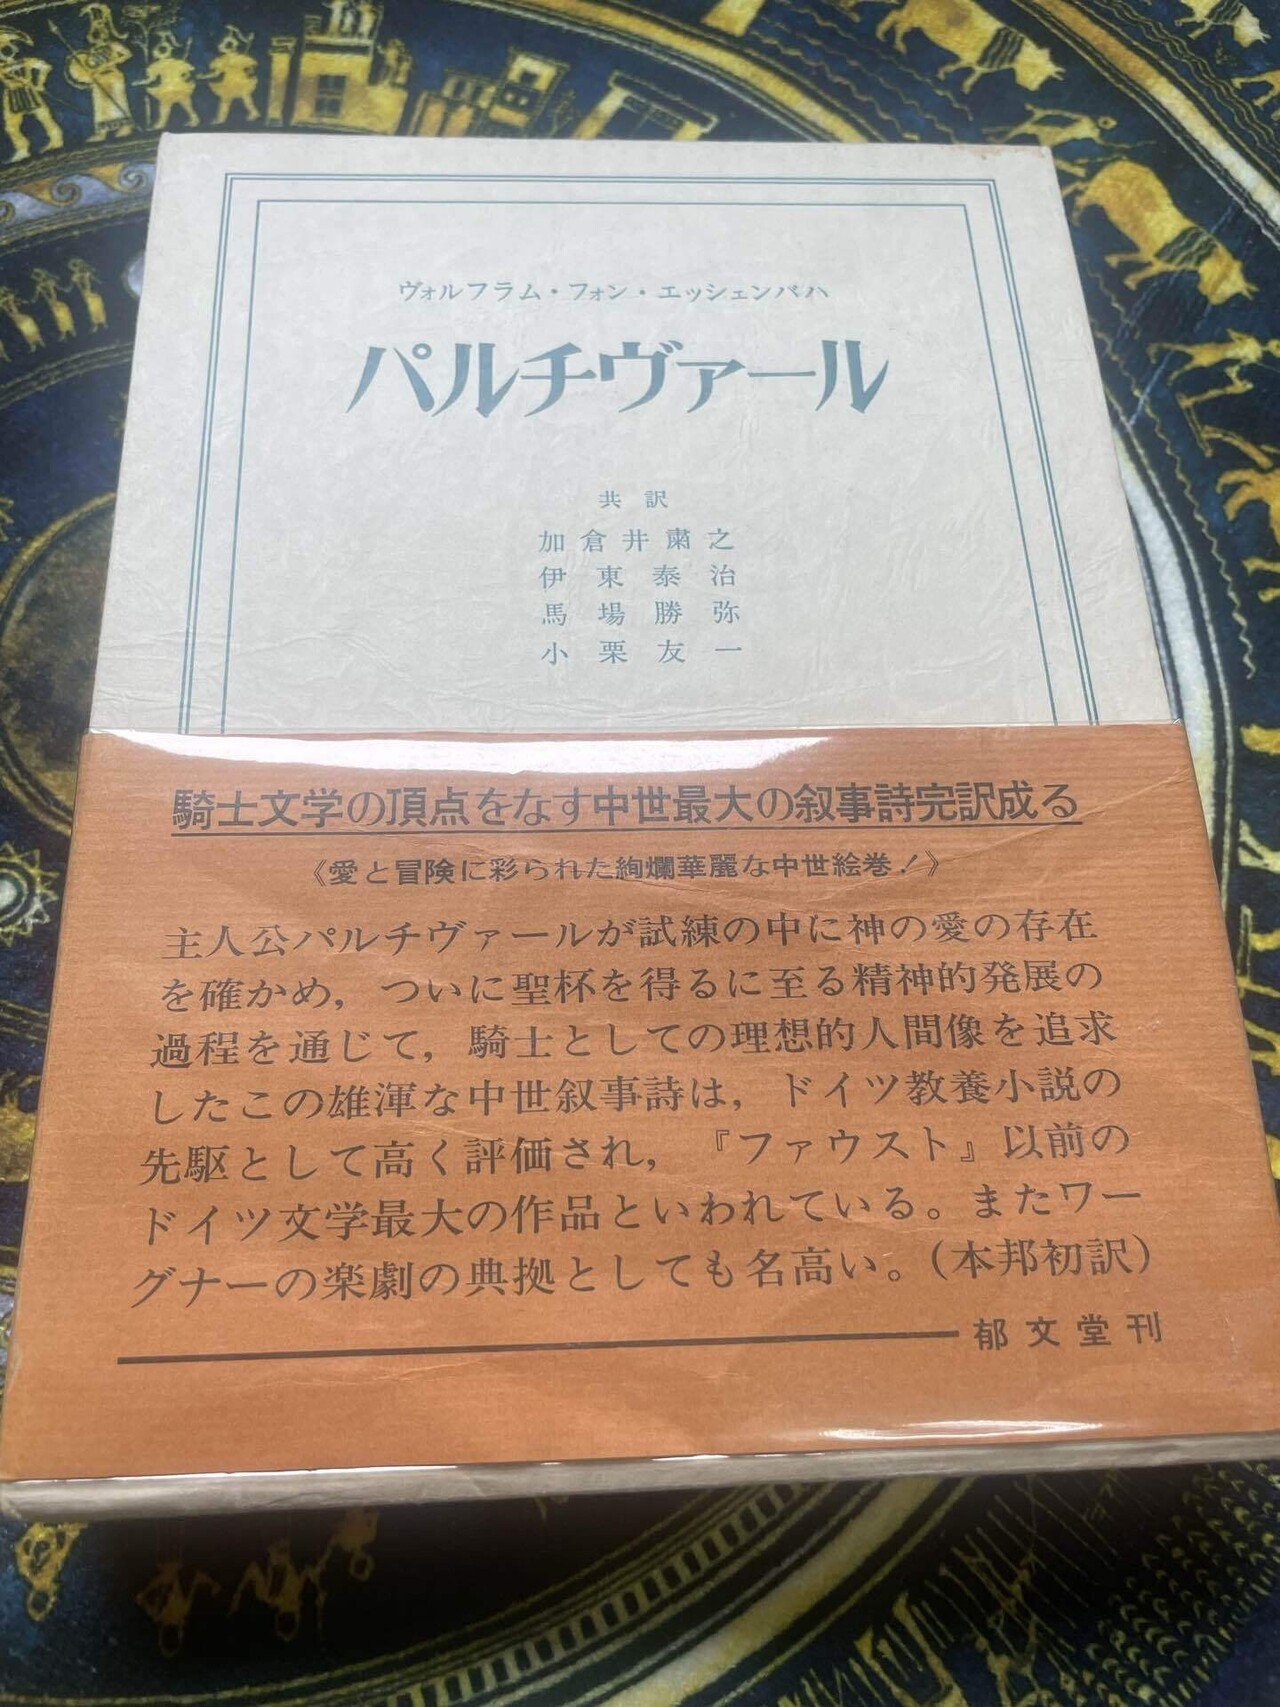 ヴォルフラム・フォン・エッシェンバハ
パルチヴァール
共訳
加倉井粛之
伊東泰治
馬場勝弥
小栗友一
騎士文学の頂点をなす中世最大の叙事詩完訳成る
《愛と冒険に彩られた絢爛華麗な中世絵巻！》
主人公パルチヴァールが試練の中に神の愛の存在
を確かめ，ついに聖杯を得るに至る精神的発展の
過程を通じて，騎士としての理想的人間像を追求
したこの雄渾な中世叙事詩は，ドイツ教養小説の
先駆として高く評価され，『ファウスト』以前の
ドイツ文学最大の作品といわれている。またワー
グナーの楽劇の典拠としても名高い。(本邦初訳)
郁文堂刊